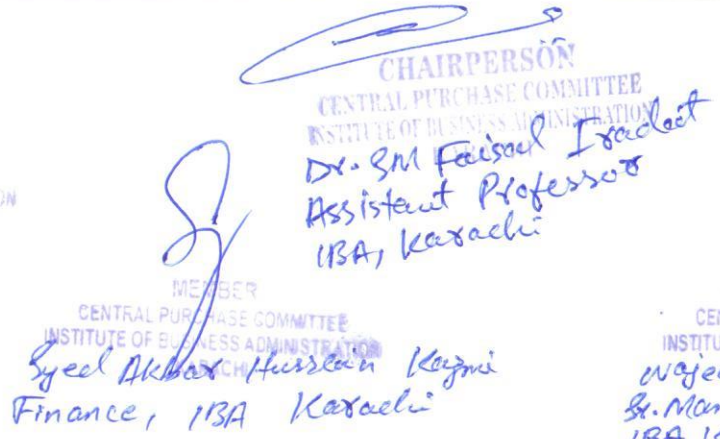 CHAIRPERSON
CENTRAL PURCHASE COMMITTEE
INSTITUTE OF BUSINESS ADMINISTRATION
Dr. SM Faisal Iradat
Assistant Professor
IBA, Karachi
MEMBER
CENTRAL PURCHASE COMMITTEE
INSTITUTE OF BUSINESS ADMINISTRATION
KARACHI
Syed Akbar Hussain Kazmi
Finance, IBA Karachi
CEN
INSTITU
Wajee
Sr. Man
IBA K